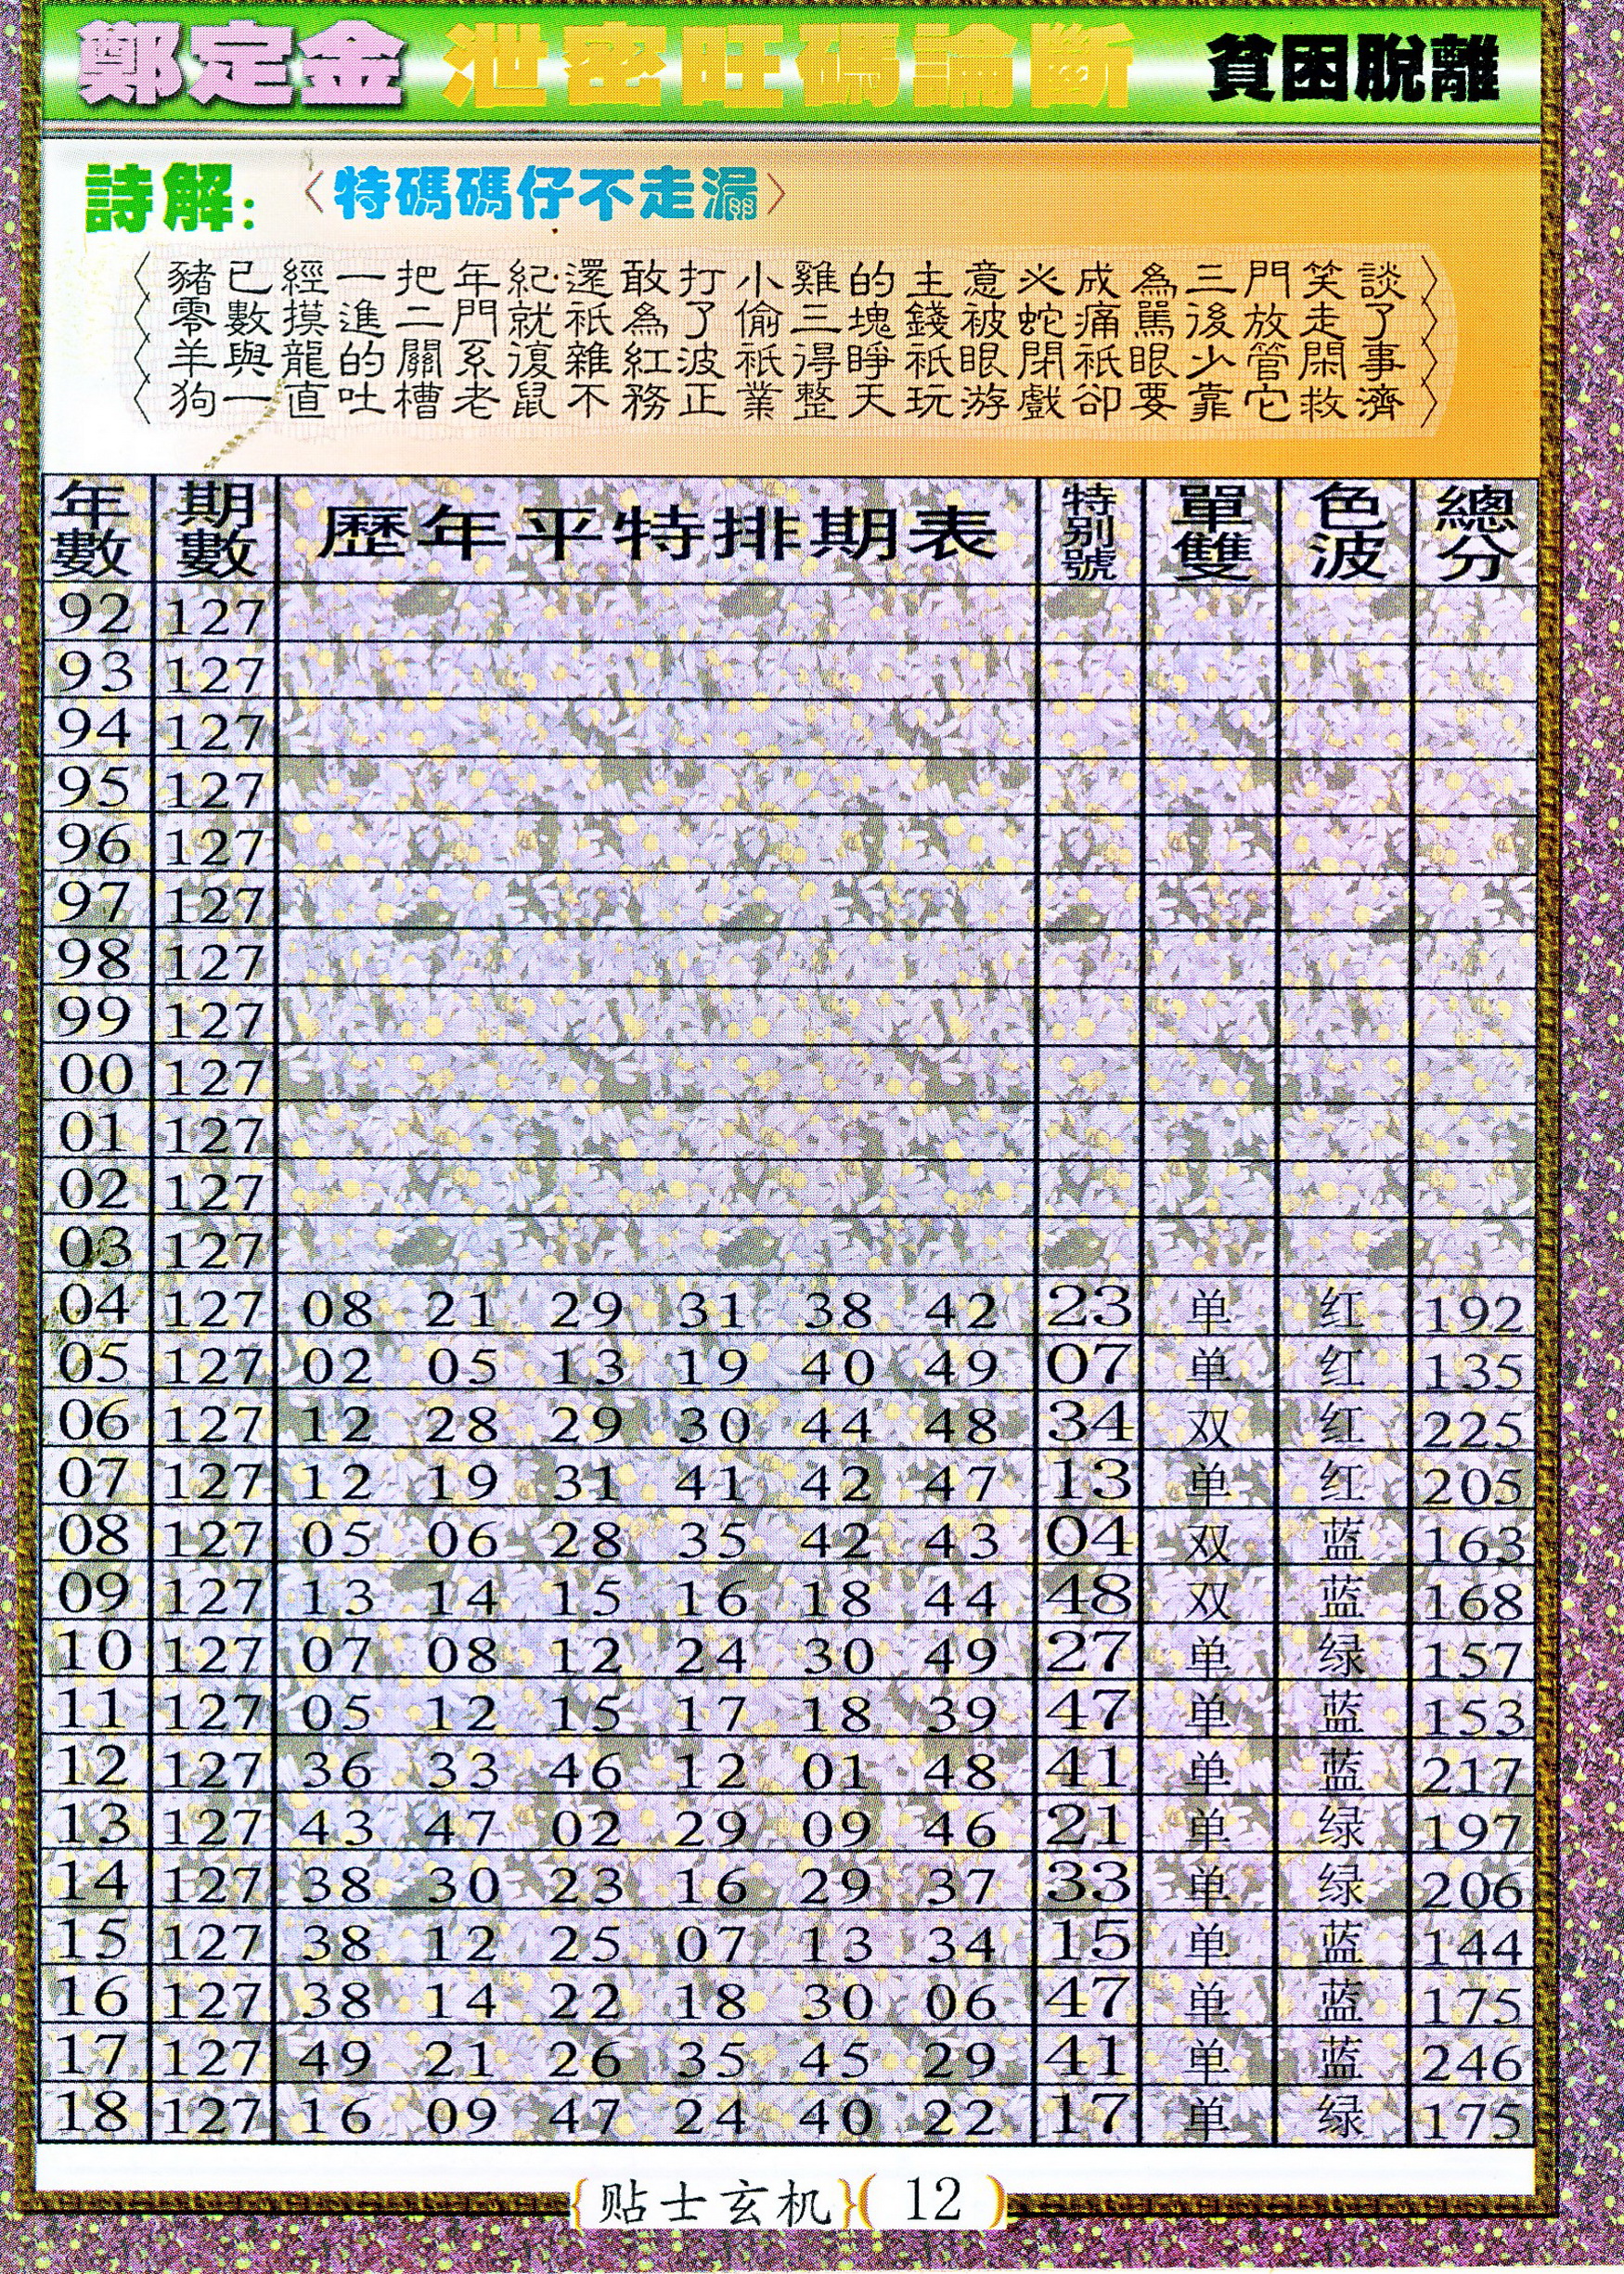 鄭定金 泄密旺碼論斷 貧困脫離
詩解: 〈特碼碼仔不走漏〉
〈豬已經一把年紀還敢打小雞的主意必成為三門笑談〉
〈零數摸進二門就祇為了偷三塊錢被蛇痛罵後放走了〉
〈羊與龍的關系復雜紅波祇得睜祇眼閉祇眼少管閑事〉
〈狗一直吐槽老鼠不務正業整天玩游戲卻要靠它救濟〉
年數 期數 歷年平特排期表 特别號 單雙 色波 總分
92 127
93 127
94 127
95 127
96 127
97 127
98 127
99 127
00 127
01 127
02 127
03 127
04 127 08 21 29 31 38 42 23 单 红 192
05 127 02 05 13 19 40 49 07 单 红 135
06 127 12 28 29 30 44 48 34 双 红 225
07 127 12 19 31 41 42 47 13 单 红 205
08 127 05 06 28 35 42 43 04 双 蓝 163
09 127 13 14 15 16 18 44 48 双 蓝 168
10 127 07 08 12 24 30 49 27 单 绿 157
11 127 05 12 15 17 18 39 47 单 蓝 153
12 127 36 33 46 12 01 48 41 单 蓝 217
13 127 43 47 02 29 09 46 21 单 绿 197
14 127 38 30 23 16 29 37 33 单 绿 206
15 127 38 12 25 07 13 34 15 单 蓝 144
16 127 38 14 22 18 30 06 47 单 蓝 175
17 127 49 21 26 35 45 29 41 单 蓝 246
18 127 16 09 47 24 40 22 17 单 绿 175
{贴士玄机}( 12 )